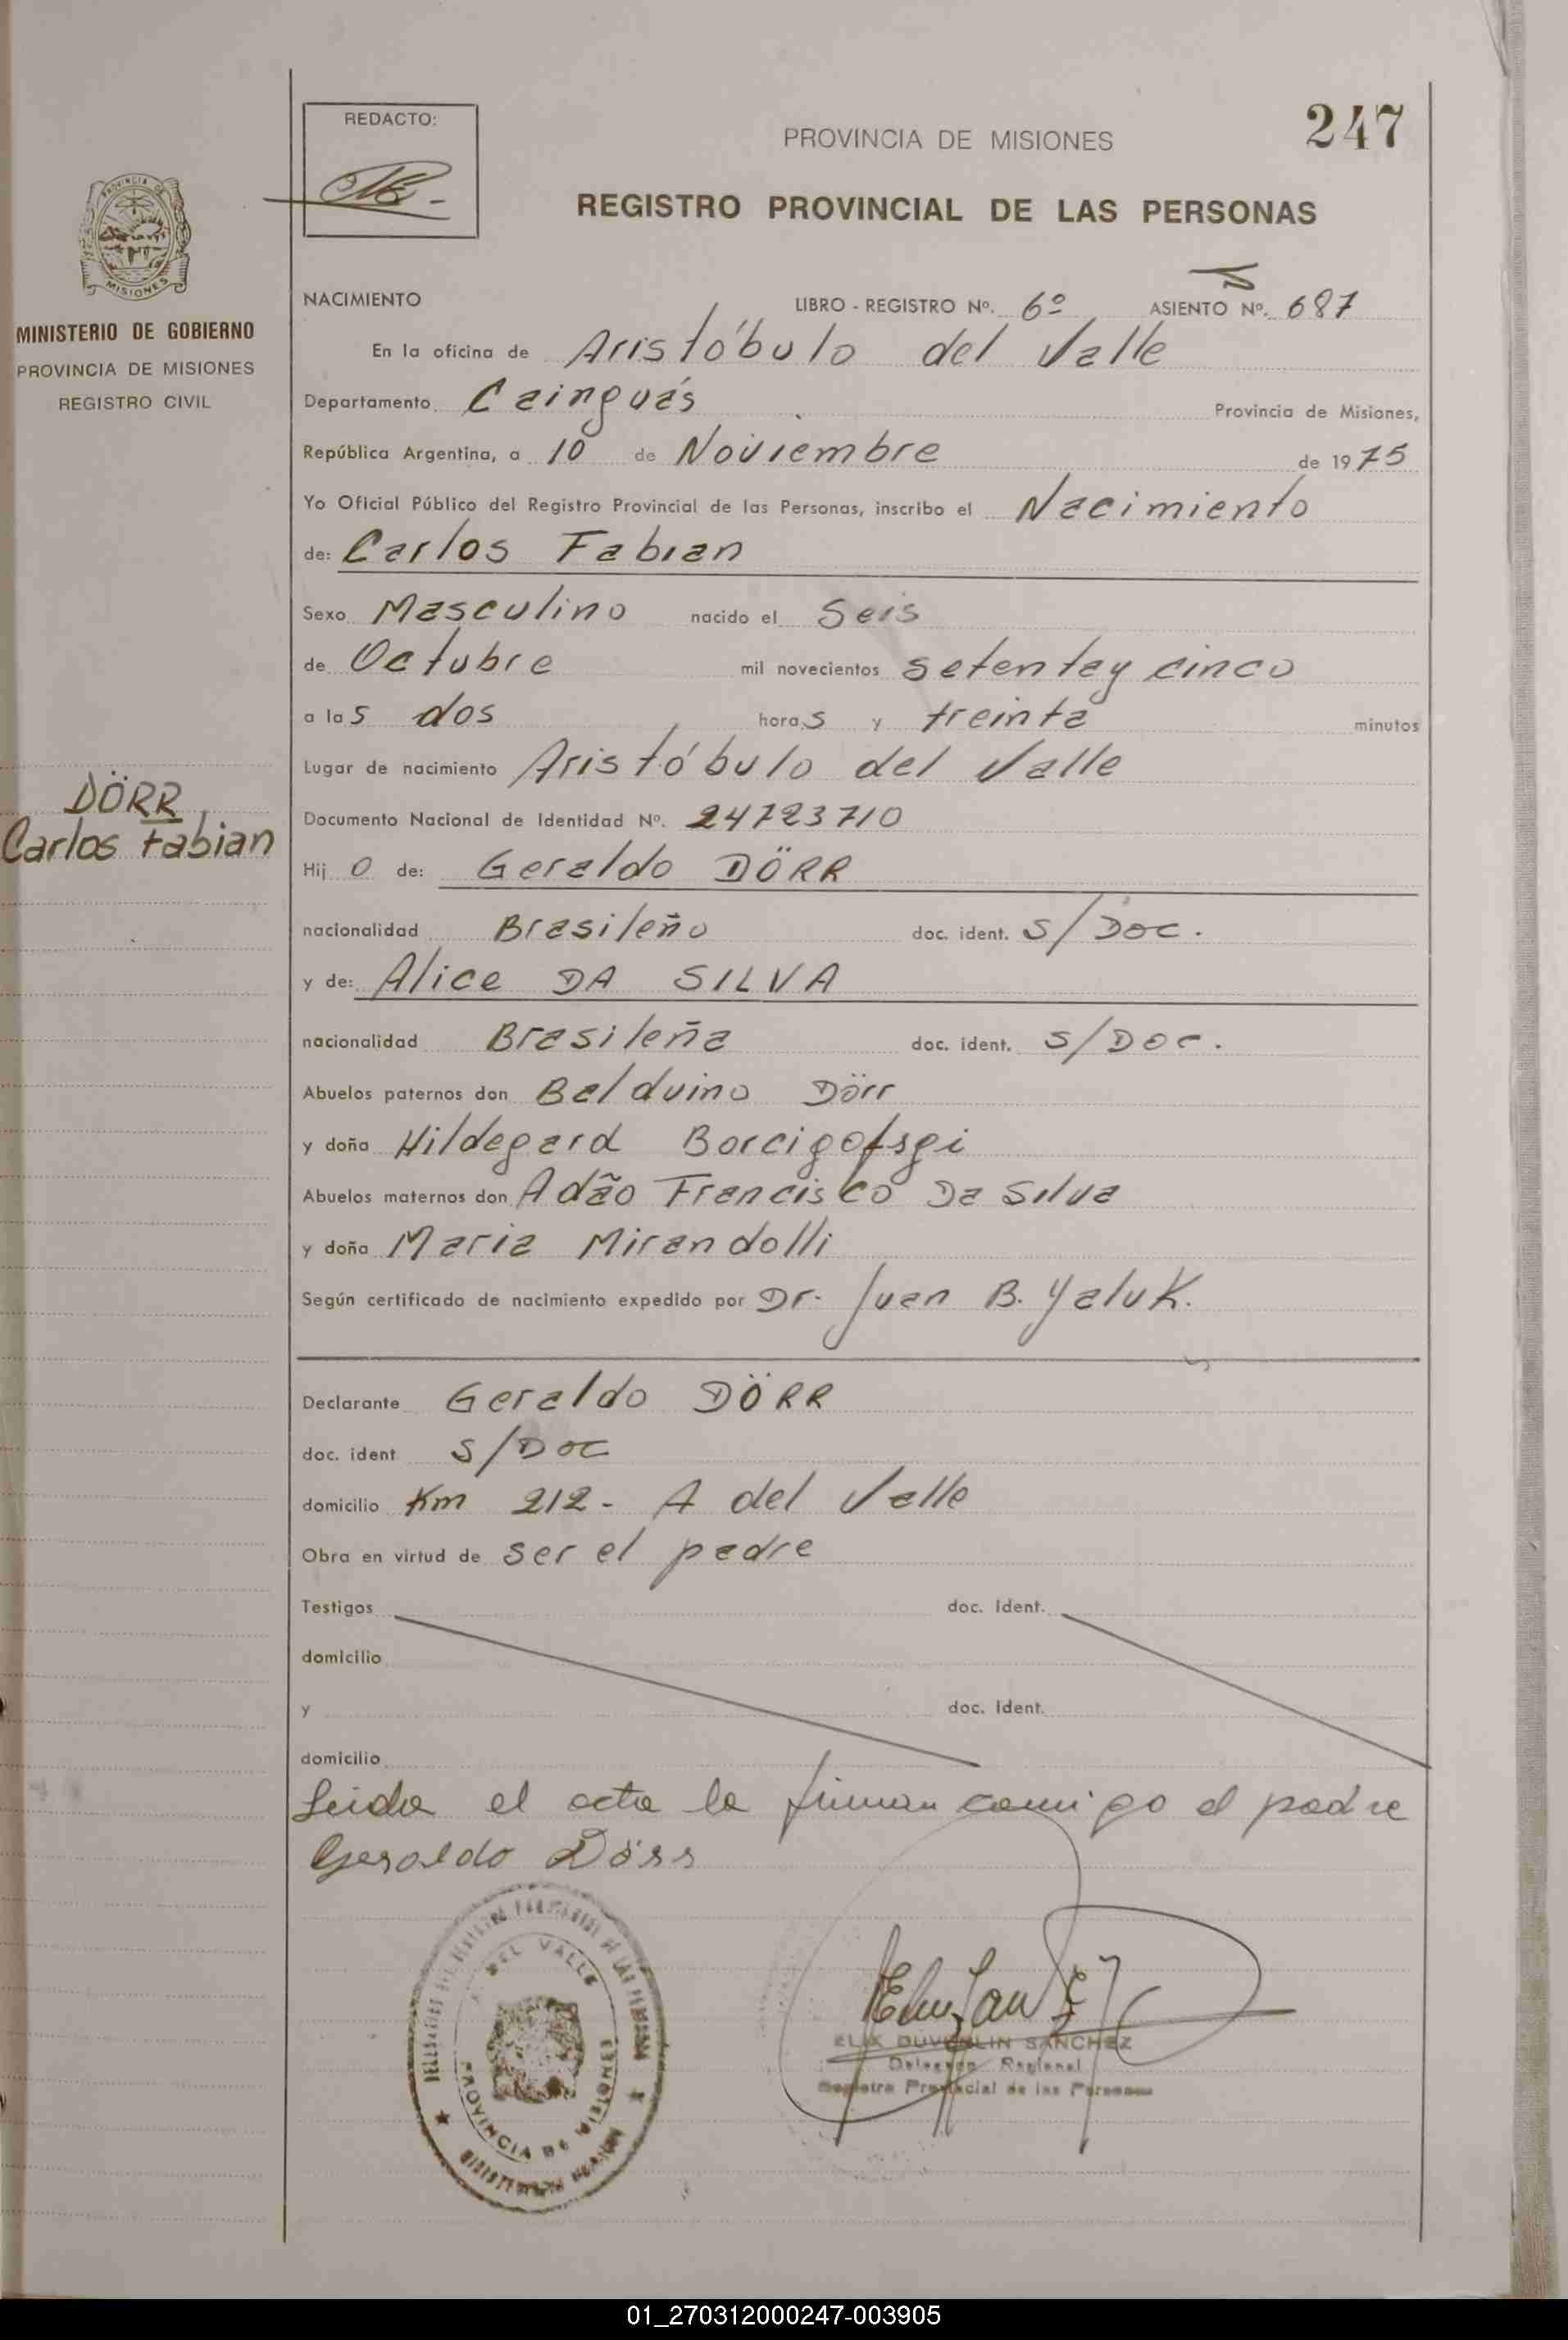 247
REDACTO:
PROVINCIA DE MISIONES
REGISTRO PROVINCIAL DE LAS PERSONAS
PROVINCIA DE
MISIONES
MINISTERIO DE GOBIERNO
PROVINCIA DE MISIONES
REGISTRO CIVIL
NACIMIENTO LIBRO - REGISTRO Nº. 6º ASIENTO Nº. 687
En la oficina de Aristóbulo del Valle
Departamento Cainguás Provincia de Misiones,
República Argentina, a 10 de Noviembre de 1975
Yo Oficial Público del Registro Provincial de las Personas, inscribo el Nacimiento
de: Carlos Fabian
Sexo Masculino nacido el Seis
de Octubre mil novecientos setenta y cinco
a las dos horas y treinta minutos
Lugar de nacimiento Aristóbulo del Valle
DÖRR
Carlos Fabian
Documento Nacional de Identidad Nº. 24723710
Hijo de: Geraldo DÖRR
nacionalidad Brasileño doc. ident. S/Doc.
y de: Alice DA SILVA
nacionalidad Brasileña doc. ident. S/Doc.
Abuelos paternos don Balduino Dörr
y doña Hildegard Borcigofsgi
Abuelos maternos don Adão Francisco Da Silva
y doña Maria Mirandolli
Según certificado de nacimiento expedido por Dr. Juan B. Yaluk.
Declarante Geraldo DÖRR
doc. ident S/Doc
domicilio Km 212 - A del Valle
Obra en virtud de ser el padre
Testigos doc. Ident.
domicilio
y doc. Ident.
domicilio
Leida el acta la firman conmigo el padre
Geraldo Dörr
DEL VALLE
PROVINCIA DE MISIONES
SANCHEZ
Delegado Regional
Registro Provincial de las Personas
01_270312000247-003905